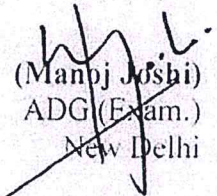 (Manoj Joshi)
ADG (Exam.)
New Delhi